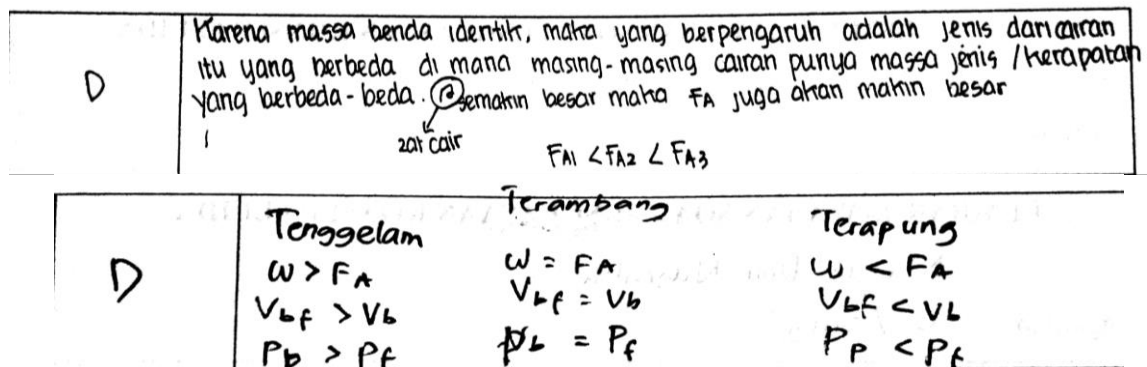 D
Karena massa benda identik, maka yang berpengaruh adalah jenis dari cairan
itu yang berbeda di mana masing-masing cairan punya massa jenis / kerapatan
yang berbeda-beda. ρ semakin besar maka FA juga akan makin besar
zat cair
FA1 < FA2 < FA3
D
Tenggelam Terambang Terapung
w > FA w = FA w < FA
Vbf > Vb Vbf = Vb Vbf < Vb
Pb > Pf Pb = Pf Pp < Pf